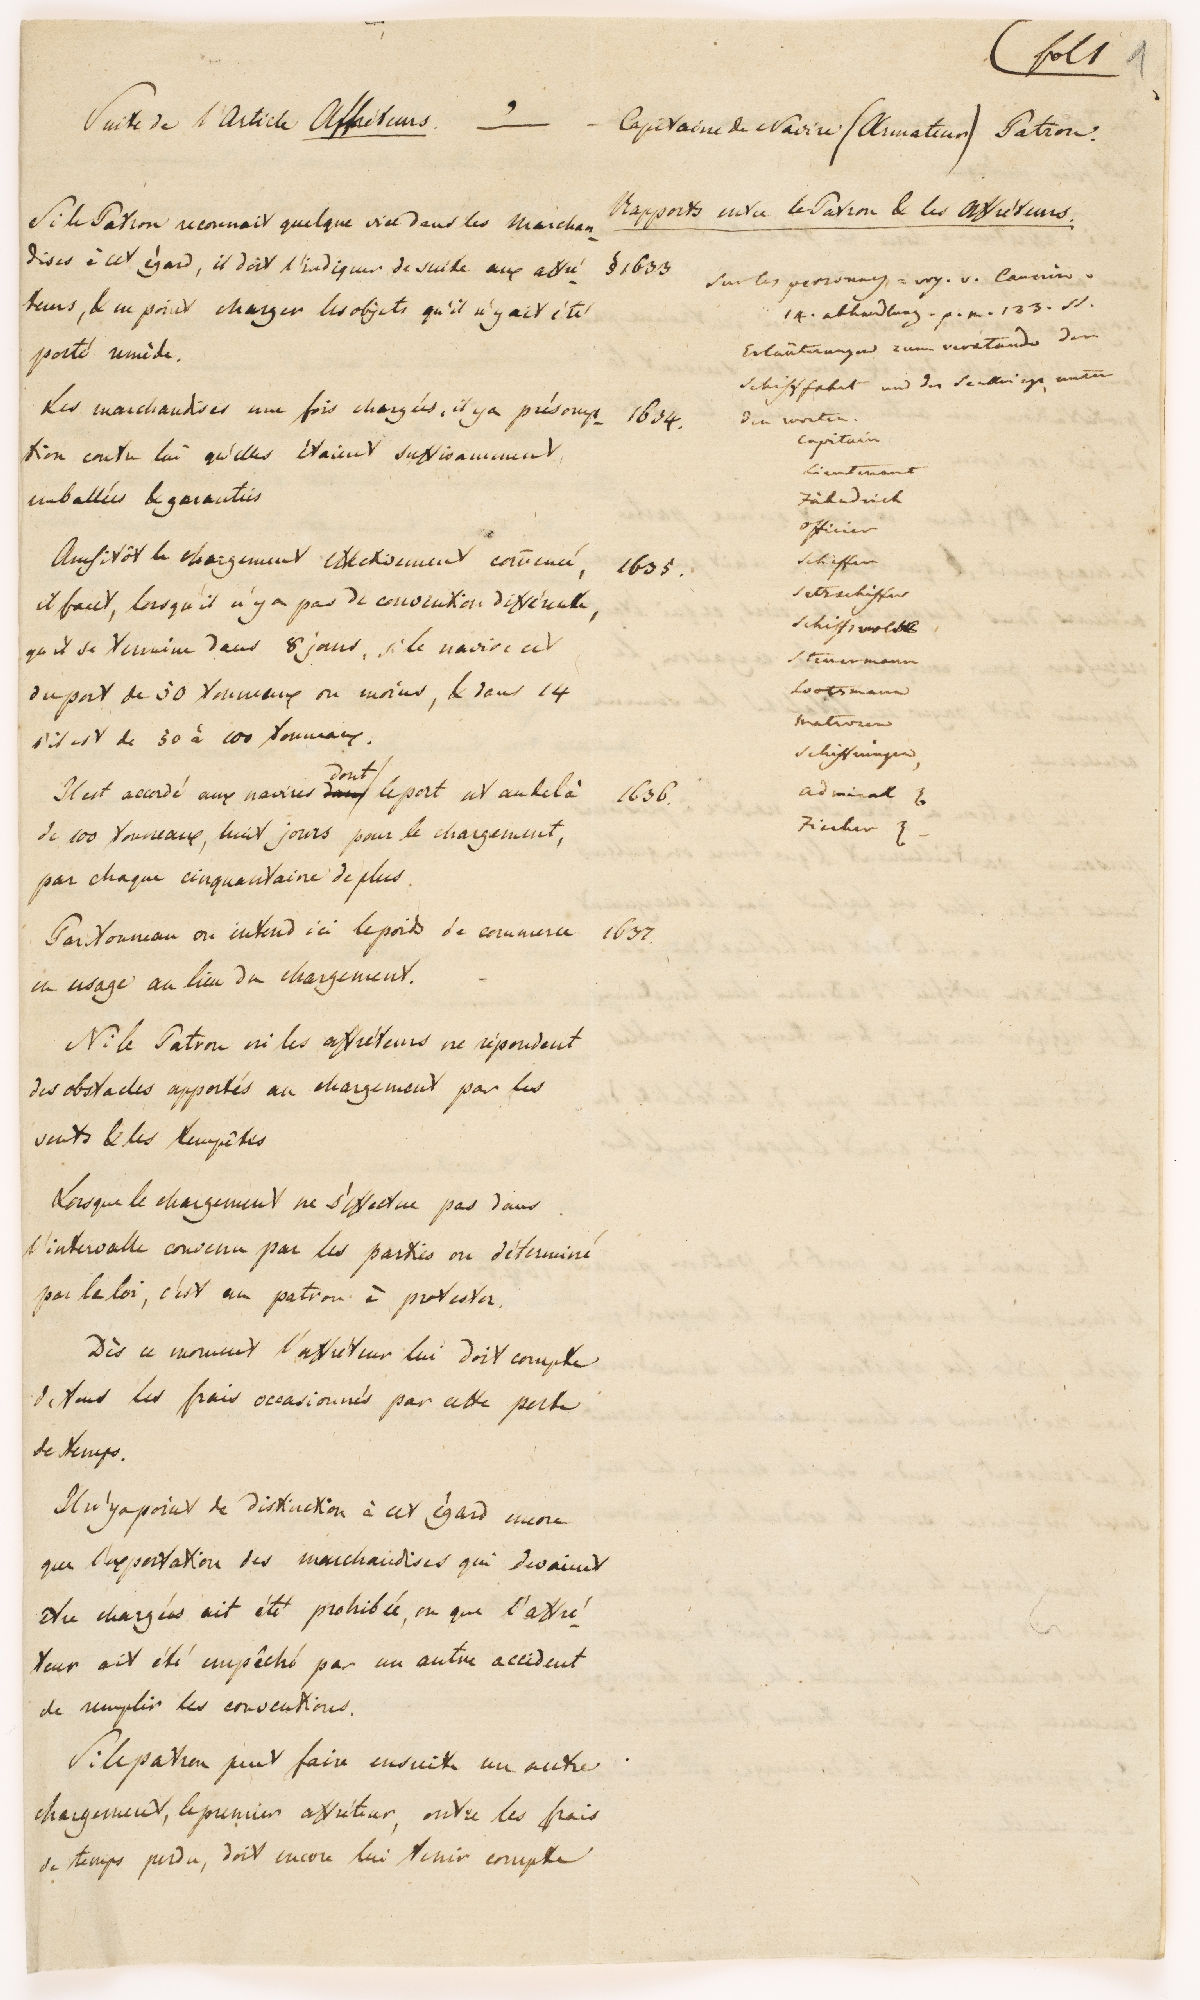 fol 1
Suite de l'Article Affréteurs. — Capitaine de Navire (Armateur) Patron.
Rapports entre le Patron & les affréteurs.
Si le Patron reconnait quelque vice dans les marchan-
dises à cet égard, il doit l'indiquer de suite aux affré-
teurs, & ne point charger les objets qu'il n'y ait été
porté remède.
§1633
Les marchandises une fois chargées, il y a présomp-
tion contre lui qu'elles étaient suffisamment
emballées & garanties
1634.
Aussitôt le chargement effectivement commencé,
il faut, lorsqu'il n'y a pas de convention différente,
qu'il se termine dans 8 jours, si le navire est
du port de 50 tonneaux ou moins, & dans 14
s'il est de 50 à 100 tonneaux.
1635.
Il est accordé aux navires dont le port est au delà
de 100 tonneaux, huit jours pour le chargement,
par chaque cinquantaine de plus.
1636.
Par tonneau on entend ici le poids de commerce
en usage au lieu du chargement.
1637.
Ni le Patron ni les affréteurs ne répondent
des obstacles apportés au chargement par les
vents & les tempêtes
Lorsque le chargement ne s'effectue pas dans
l'intervalle convenu par les parties ou déterminé
par la loi, c'est au patron à protester.
Dès ce moment l'affréteur lui doit compte
de tous les frais occasionnés par cette perte
de temps.
Il n'y a point de distinction à cet égard encore
que l'exportation des marchandises qui devaient
être chargées ait été prohibée, ou que l'affré-
teur ait été empêché par un autre accident
de remplir les conventions.
Si le patron peut faire ensuite un autre
chargement, le premier affréteur, outre les frais
de temps perdu, doit encore lui tenir compte
Sur les personnes = voy. v. Cancrin.
14. abhandlung. p. m. 133. ss.
Erläuterungen zum verstande der
Schiffahrt und des Seekriegs, unter
den worten.
Capitain
Lieutenant
Fähndrich
Officier
Schiffer
Setzschiffer
Schiffsvolk
Steuermann
Lootsmann
Matrosen
Schiffsjungen,
Admiral
Fischer